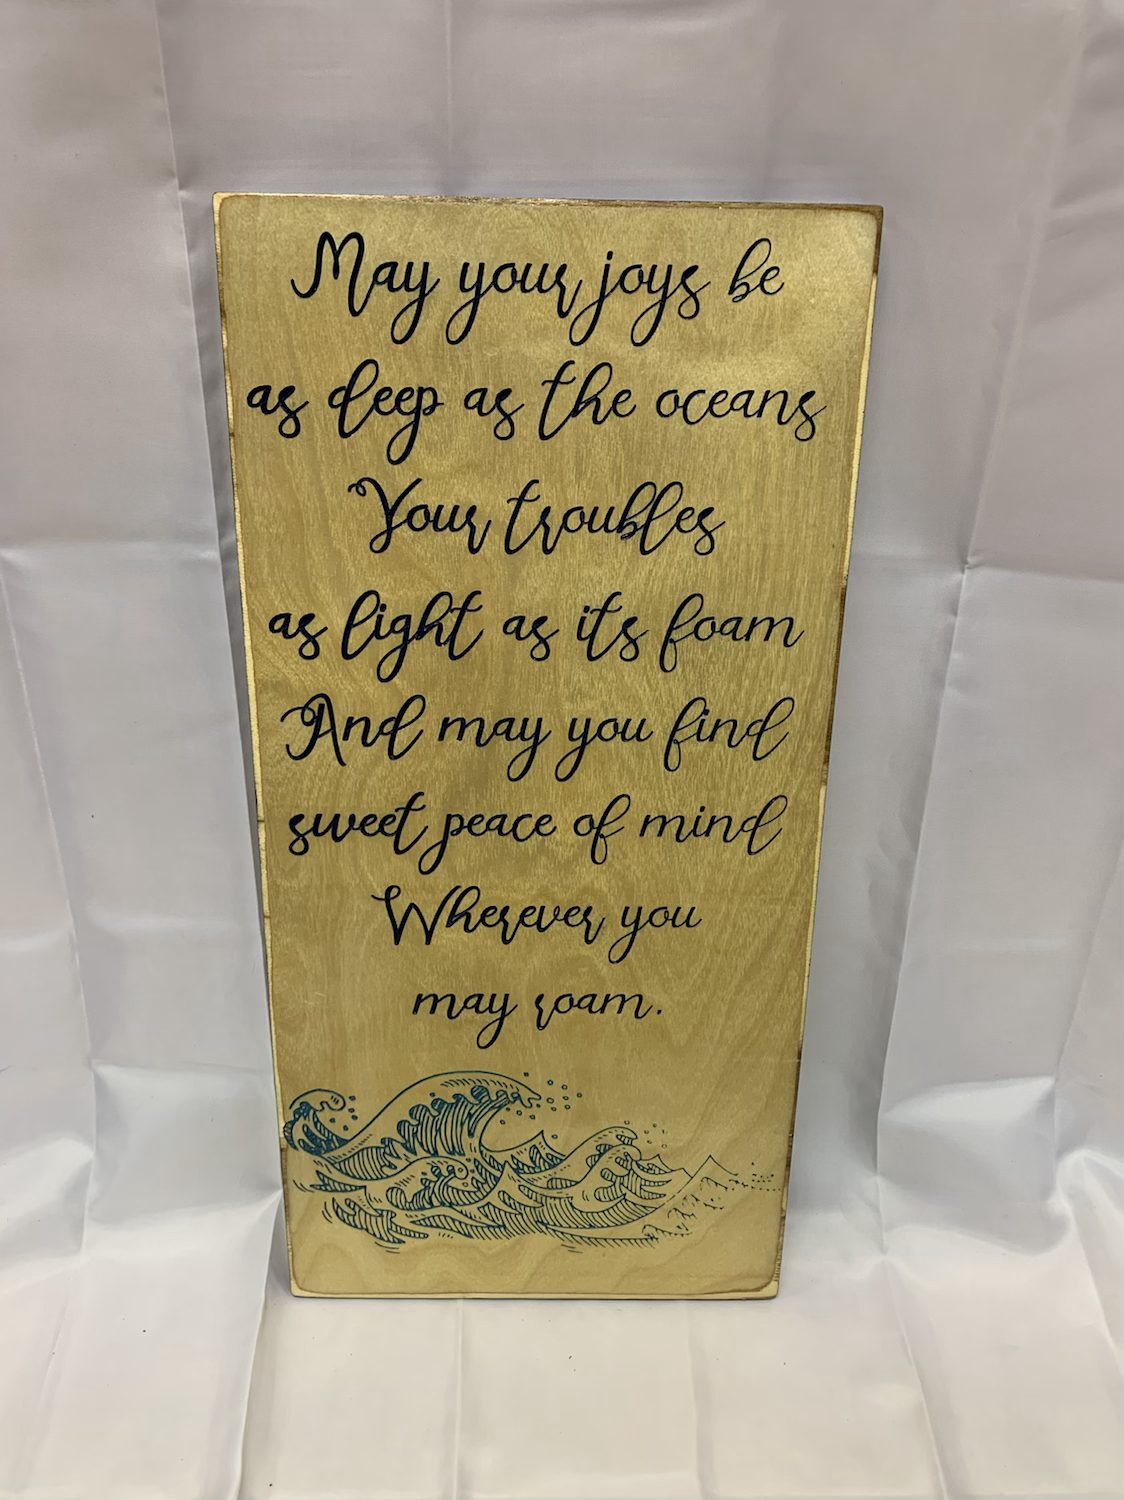 May your joys be
as deep as the oceans
Your troubles
as light as its foam
And may you find
sweet peace of mind
Wherever you
may roam.